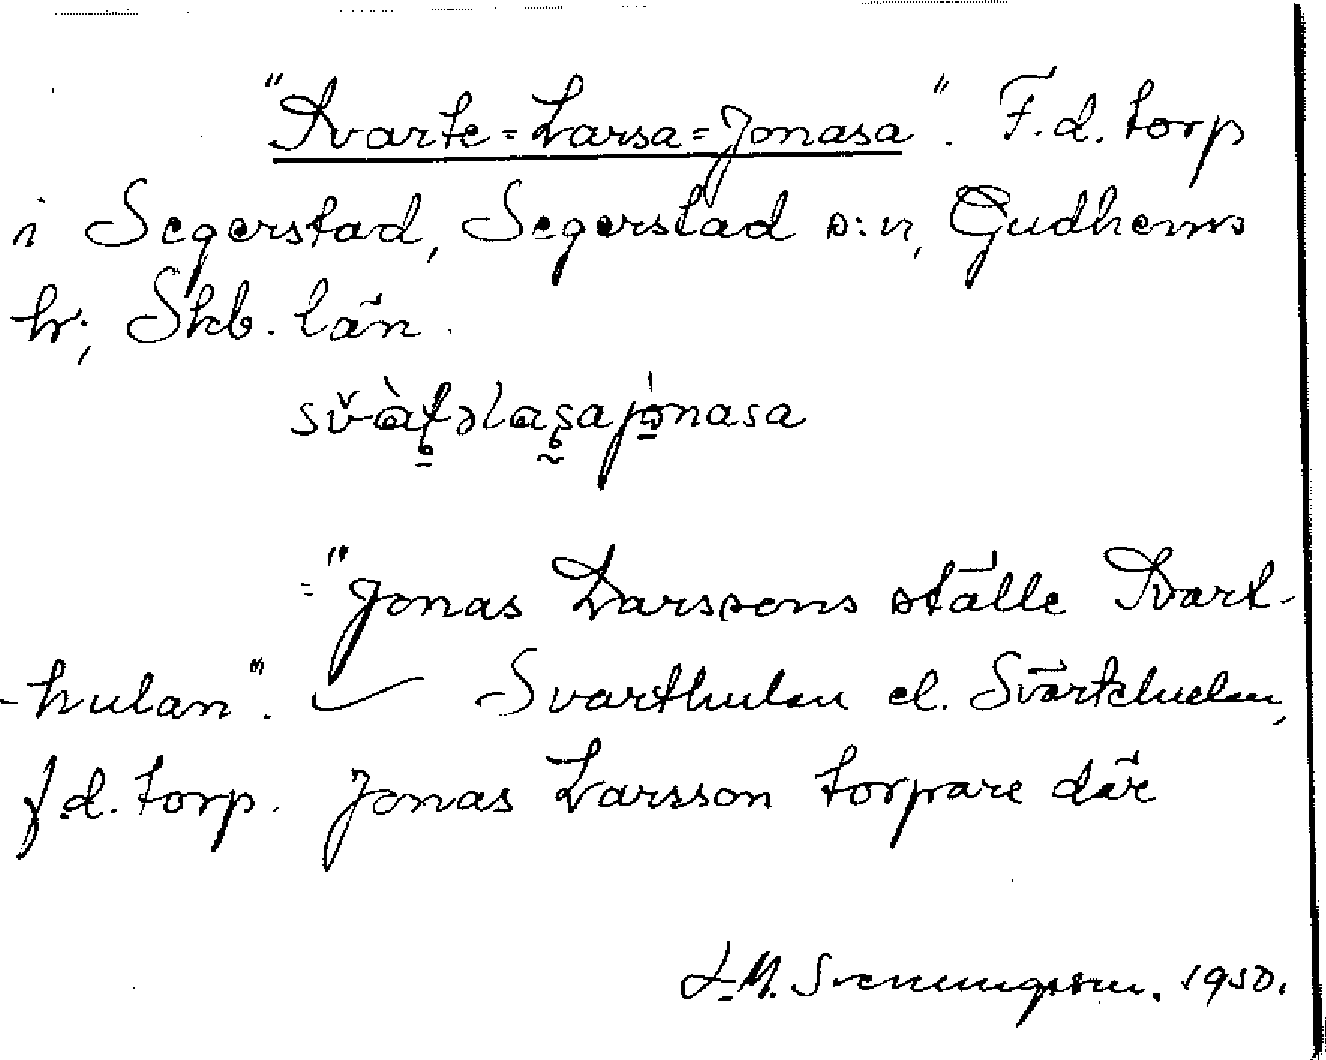 "Svarte=Larsa=Jonasa". F.d. torp
i Segerstad, Segerstad s:n, Gudhems
hr; Skb. län.
svàʈəlaʂajónasa
="Jonas Larssons ställe Svart-
-hulan". Svarthulan el. Svartehulan,
f d. torp. Jonas Larsson torpare där
L.M. Svenungsson. 1950.